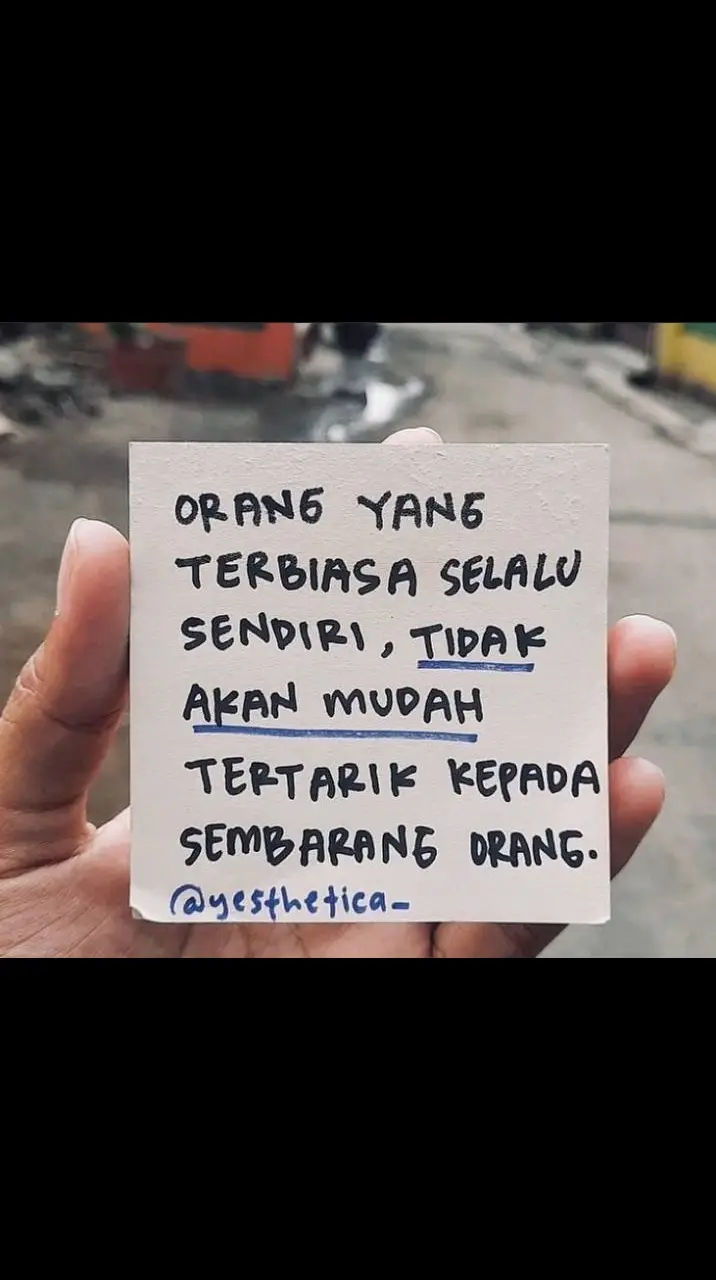 ORANG YANG
TERBIASA SELALU
SENDIRI, TIDAK
AKAN MUDAH
TERTARIK KEPADA
SEMBARANG ORANG.
@yesthetica_